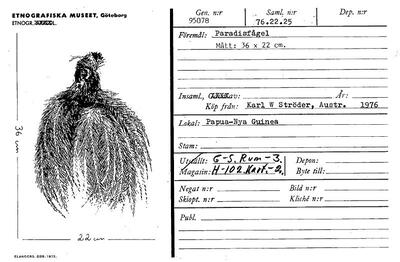 ETNOGRAFISKA MUSEET, Göteborg
ETNOGR.
36 cm
22 cm
ELANDERS, GBG. 1972.
Gen. n:r
95078
Saml. n:r
76.22.25
Dep. n:r
Föremål: Paradisfågel
Mått: 36 x 22 cm.
Insaml. av: År:
Köp från: Karl W Ströder, Austr. 1976
Lokal: Papua-Nya Guinea
Stam:
Utställt: G-S. Rum-3. Depon:
Magasin: H-102 Kart.-2. Byte till:
Negat n:r Bild n:r
Skiopt. n:r Kliché n:r
Publ.